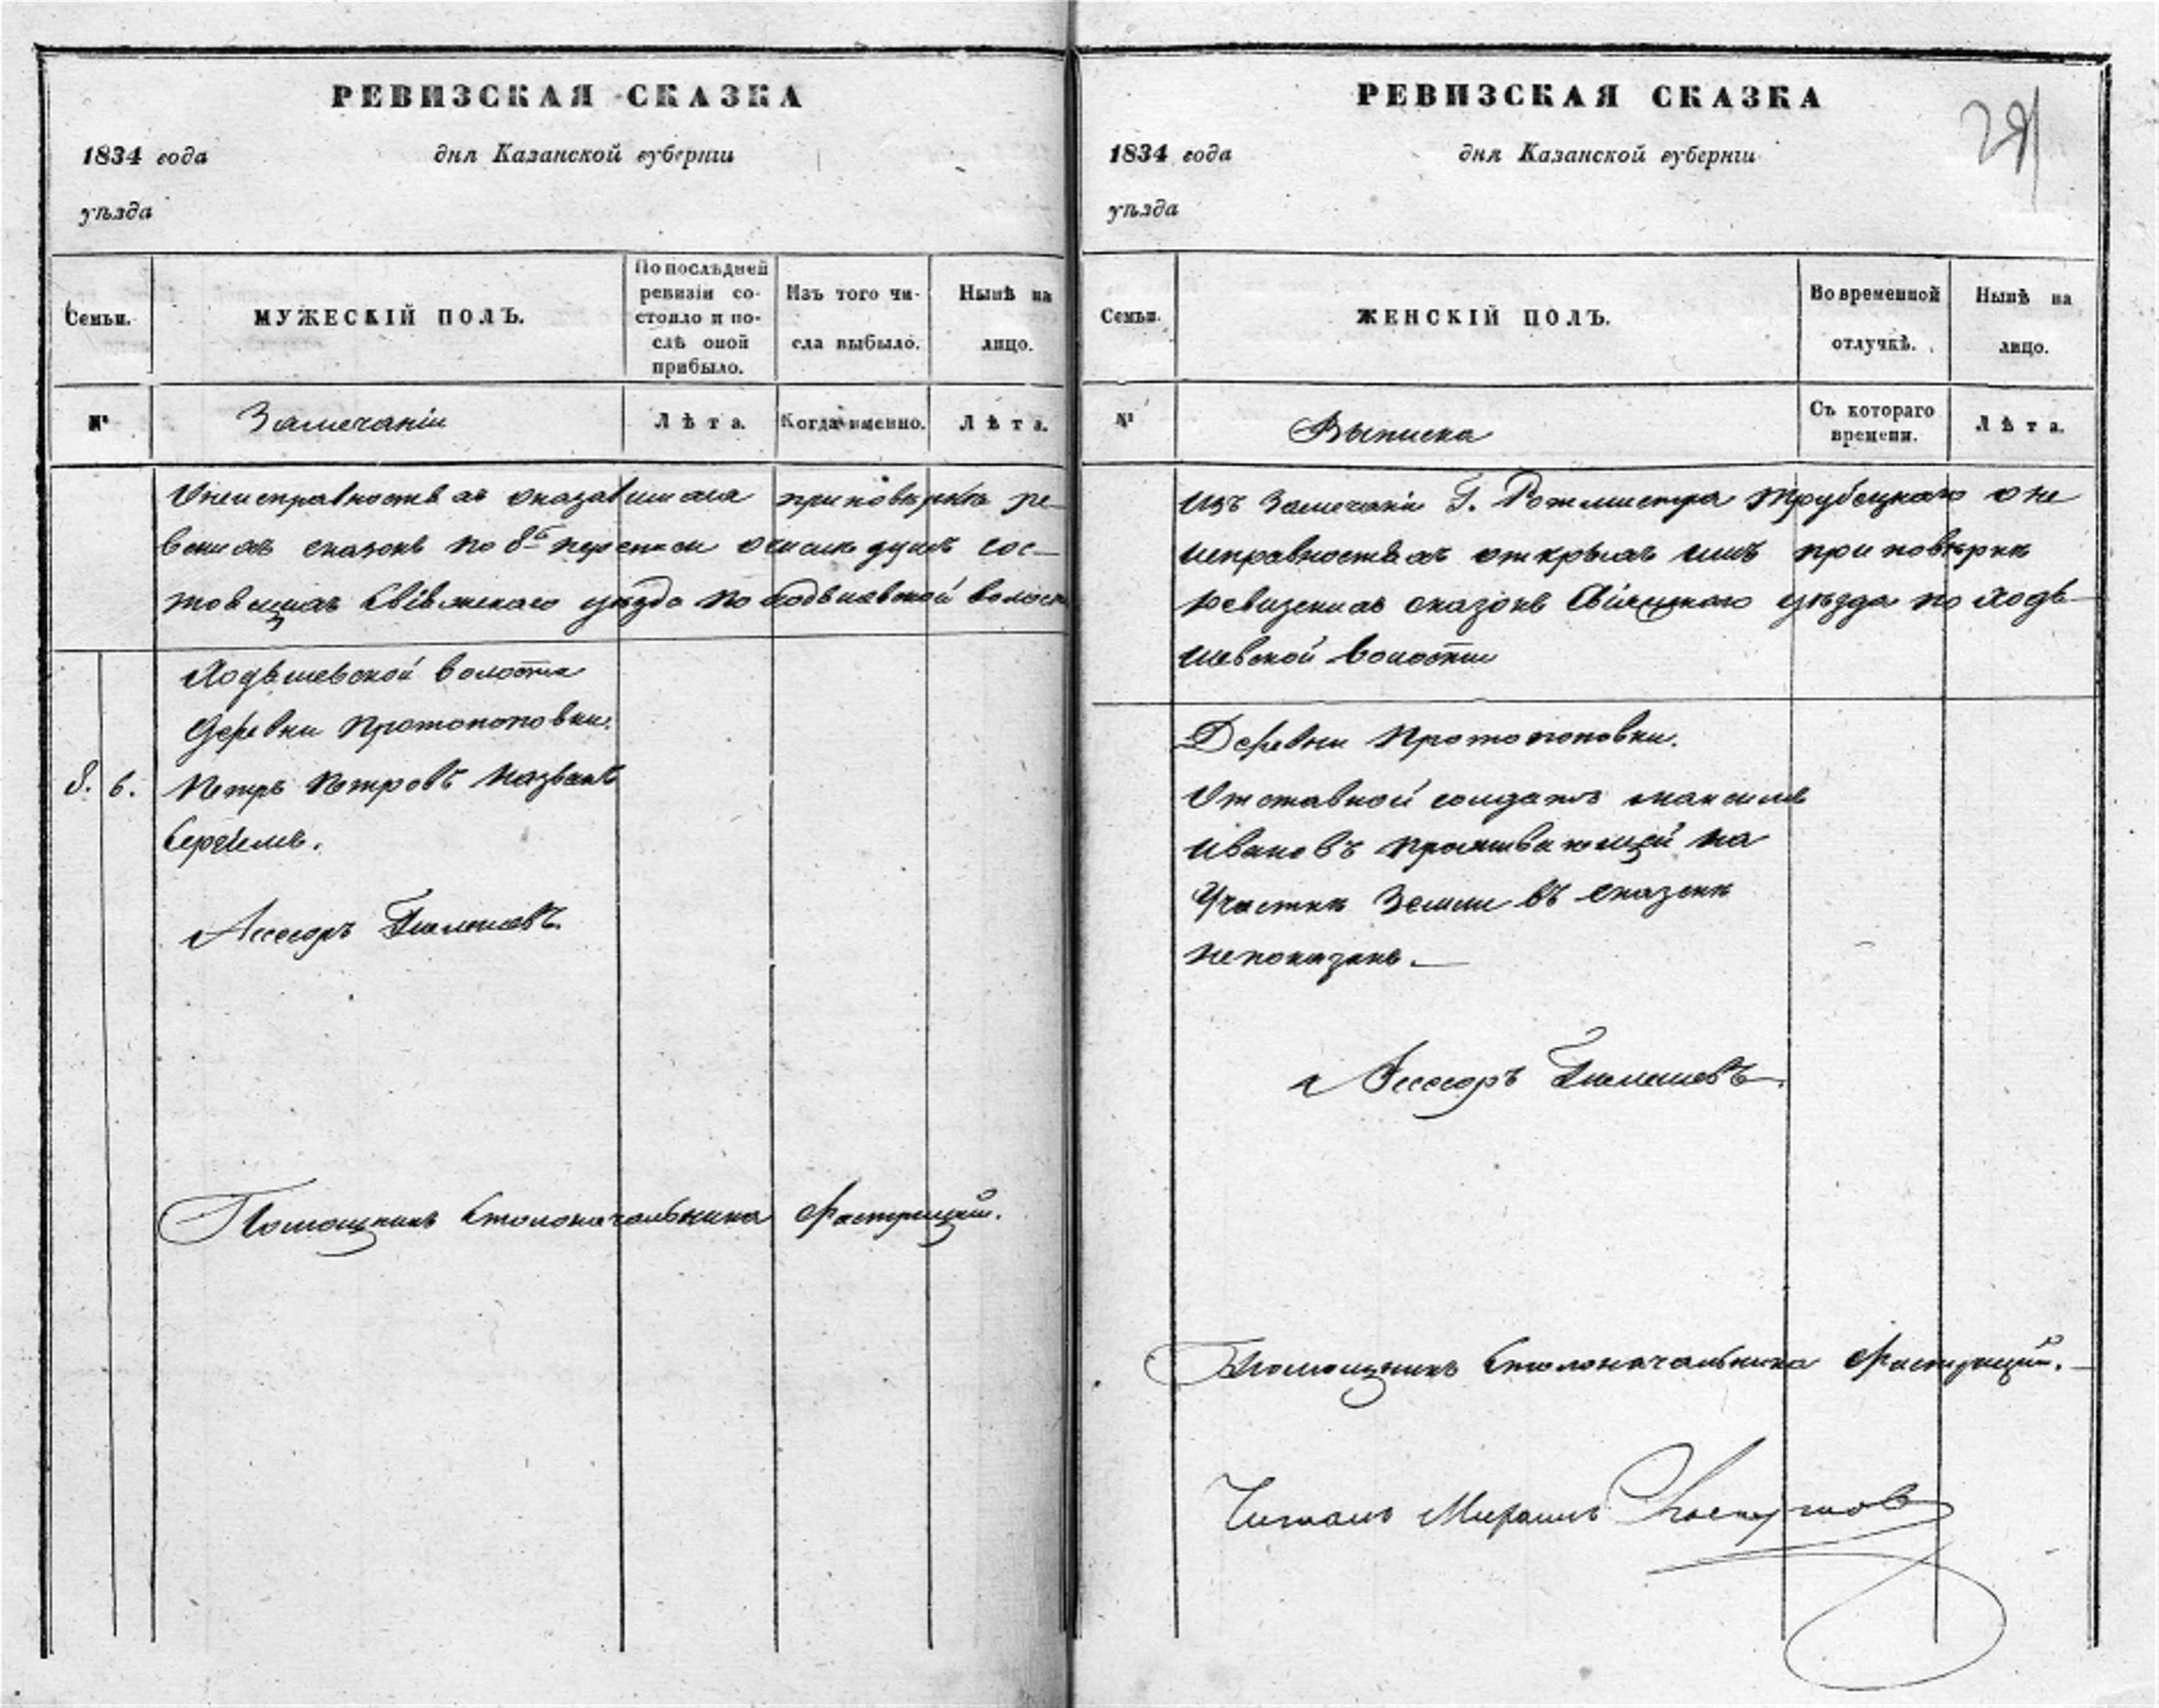 РЕВИЗСКАЯ СКАЗКА
1834 года дня Казанской губернiи
уѣзда
Семьи.
МУЖЕСКІЙ ПОЛЪ.
По послѣдней
ревизіи со-
стояло и по-
слѣ оной
прибыло.
Изъ того чи-
сла выбыло.
Нынѣ на
лицо.
№
Замечанiи
Лѣта.
Когда именно.
Лѣта.
Онеисправностяхъ оказавшихся при повѣркѣ ре-
визскихъ сказокъ по 8й переписи очисле душъ сос-
тоящихъ Свiяжскаго уѣзда по волости
волости
Деревни Протопоповки.
8. 6. Петръ Петровъ названъ
Сергѣемъ.
Асесоръ
Помощникъ Столоначальника
РЕВИЗСКАЯ СКАЗКА
1834 года дня Казанской губернiи
уѣзда
Семьи.
ЖЕНСКІЙ ПОЛЪ.
Во временной
отлучкѣ.
Нынѣ на
лицо.
№
Выписка
Съ котораго
времени.
Лѣта.
изъ Замечанiи Г. Ротмистра Трубецкаго о не
исправностяхъ открытыхъ имъ при повѣркѣ
ревизскихъ сказокъ уѣзда по Ходя-
шевской волости
Деревни Протопоповки.
Отставной солдатъ Максимъ
Ивановъ проживающей на
Участкѣ Земли въ сказкѣ
непоказанъ.
Асесоръ
Помощникъ Столоначальника
Читалъ